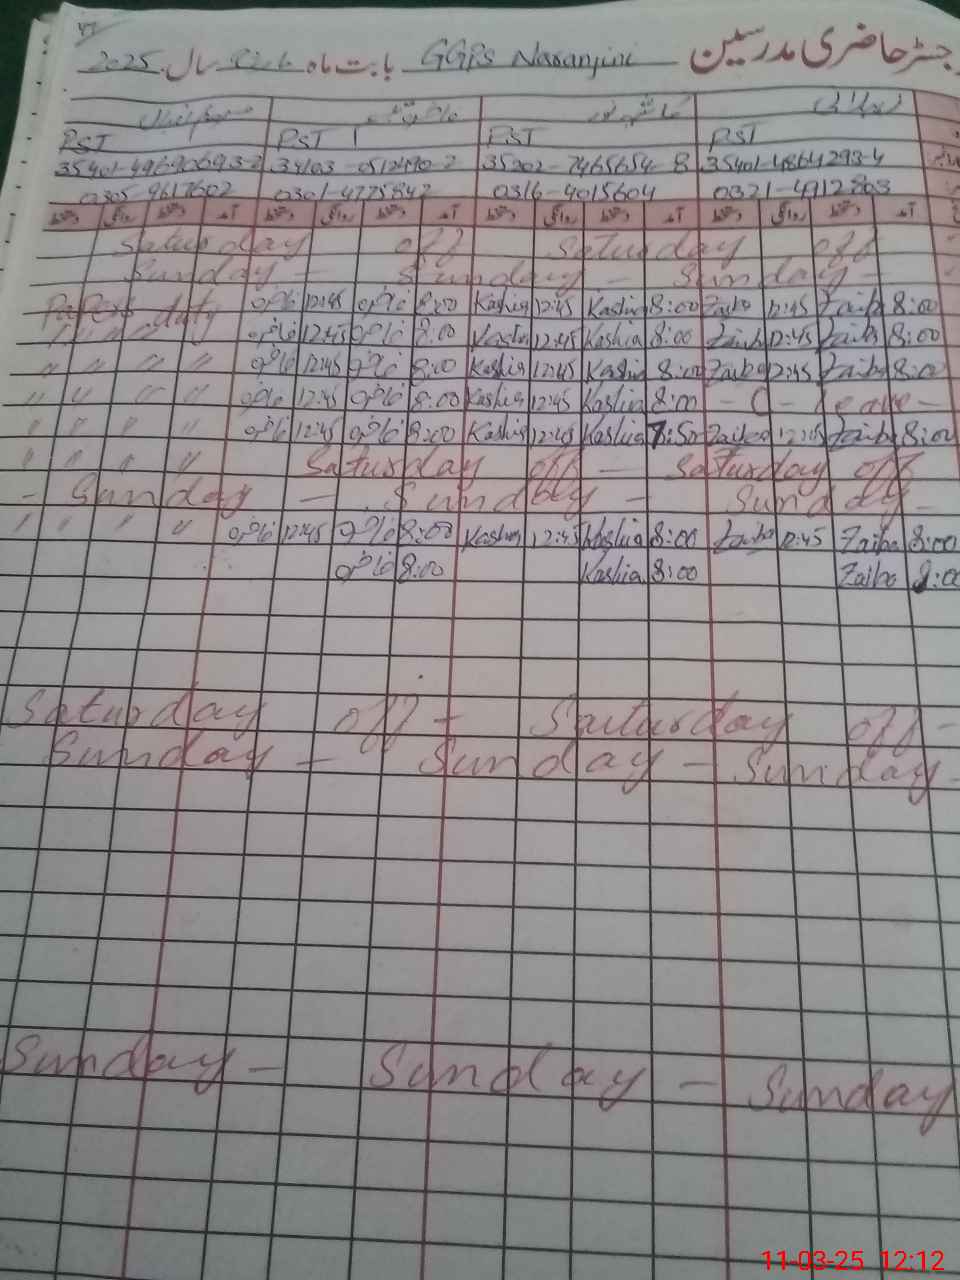 رجسٹر حاضری مدرسین GGPS Naranjini بابت ماہ مارچ سال 2025
PST PST PST PST
35401-4864293-4 35202-7465654-8 34103-0512490-2
0321-4912803 0316-4015604 0301-4775842 0305-9617602
آمد دستخط روانگی دستخط آمد دستخط روانگی دستخط آمد دستخط روانگی دستخط آمد دستخط روانگی دستخط
Saturday off Saturday off
Sunday - Sunday - Sunday -
Papers duty 12:45 8:00 Kashia 12:45 Kashia 8:00 Zaiba 12:45 Zaiba 8:00
" " " " 12:45 8:00 Kashia 12:45 Kashia 8:00 Zaiba 12:45 Zaiba 8:00
" " " " 12:45 8:00 Kashia 12:45 Kashia 8:00 Zaiba 12:45 Zaiba 8:00
" " " " 12:45 8:00 Kashia 12:45 Kashia 8:00 - C - leave -
" " " " 12:45 8:00 Kashia 12:45 Kashia 7:50 Zaiba 12:45 Zaiba 8:00
" " " " Saturday off - Saturday off
- Sunday - Sunday - Sunday -
" " " " 12:45 8:00 Kashia 12:45 Kashia 8:00 Zaiba 12:45 Zaiba 8:00
8:00 Kashia 8:00 Zaiba 8:00
Saturday off - Saturday off -
Sunday - Sunday - Sunday -
Sunday - Sunday - Sunday
11-03-25 12:12